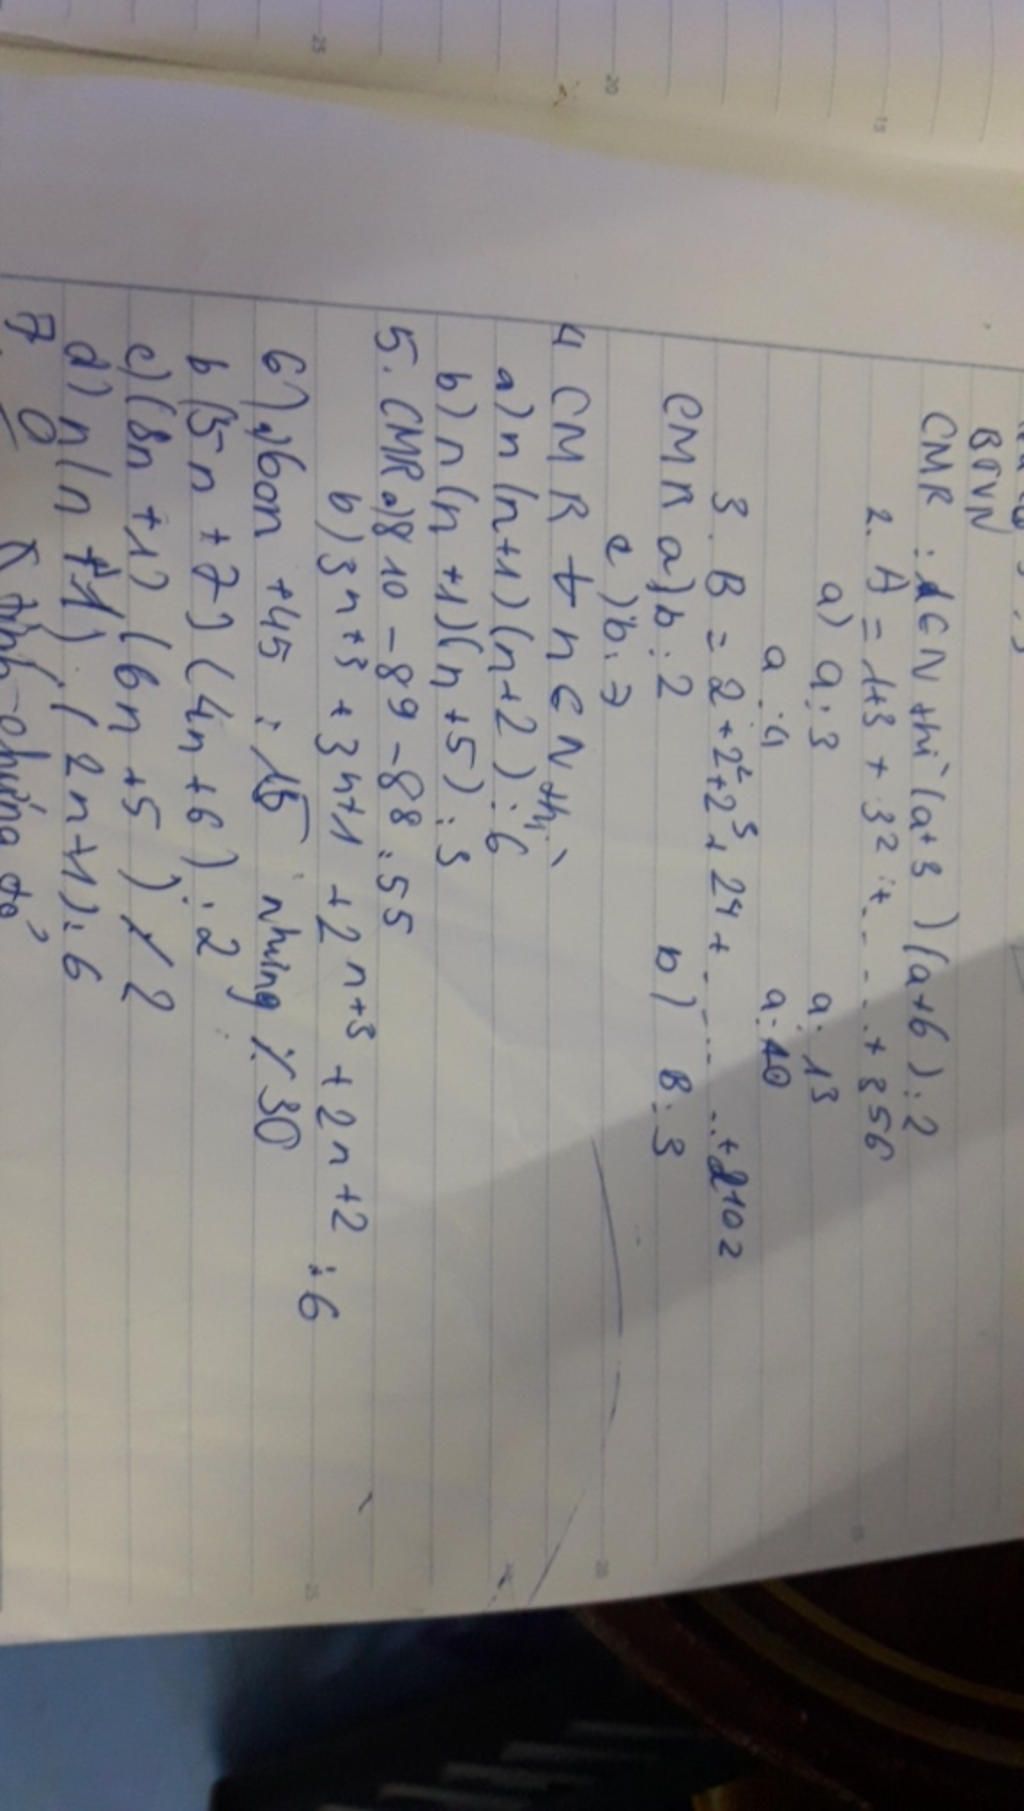 BTVN
CMR : a ∈ N thì (a+3)(a+6) ⋮ 2
2. A = 1+3 + 3² + ..... + 356
a) a ⋮ 3 a ⋮ 13
a ⋮ 4 a ⋮ 40
3. B = 2 + 2² + 2³ + 24 + ..... + 2102
CMR a) b ⋮ 2 b) B ⋮ 3
c) b ⋮ 7
4 CMR ∀ n ∈ N thì
a) n (n+1) (n+2) ⋮ 6
b) n (n+1) (n+5) ⋮ 3
5. CMR a) 810 - 89 - 88 ⋮ 55
b) 3n+3 + 3n+1 + 2n+3 + 2n+2 ⋮ 6
6) a) 60n + 45 ⋮ 15 nhưng ⋮̸ 30
b) (5n + 7) (4n + 6) ⋮ 2
c) (8n + 1) (6n + 5) ⋮̸ 2
d) n (n + 1) (2n + 1) ⋮ 6
7. chứng tỏ
25
20
15
15
20
25